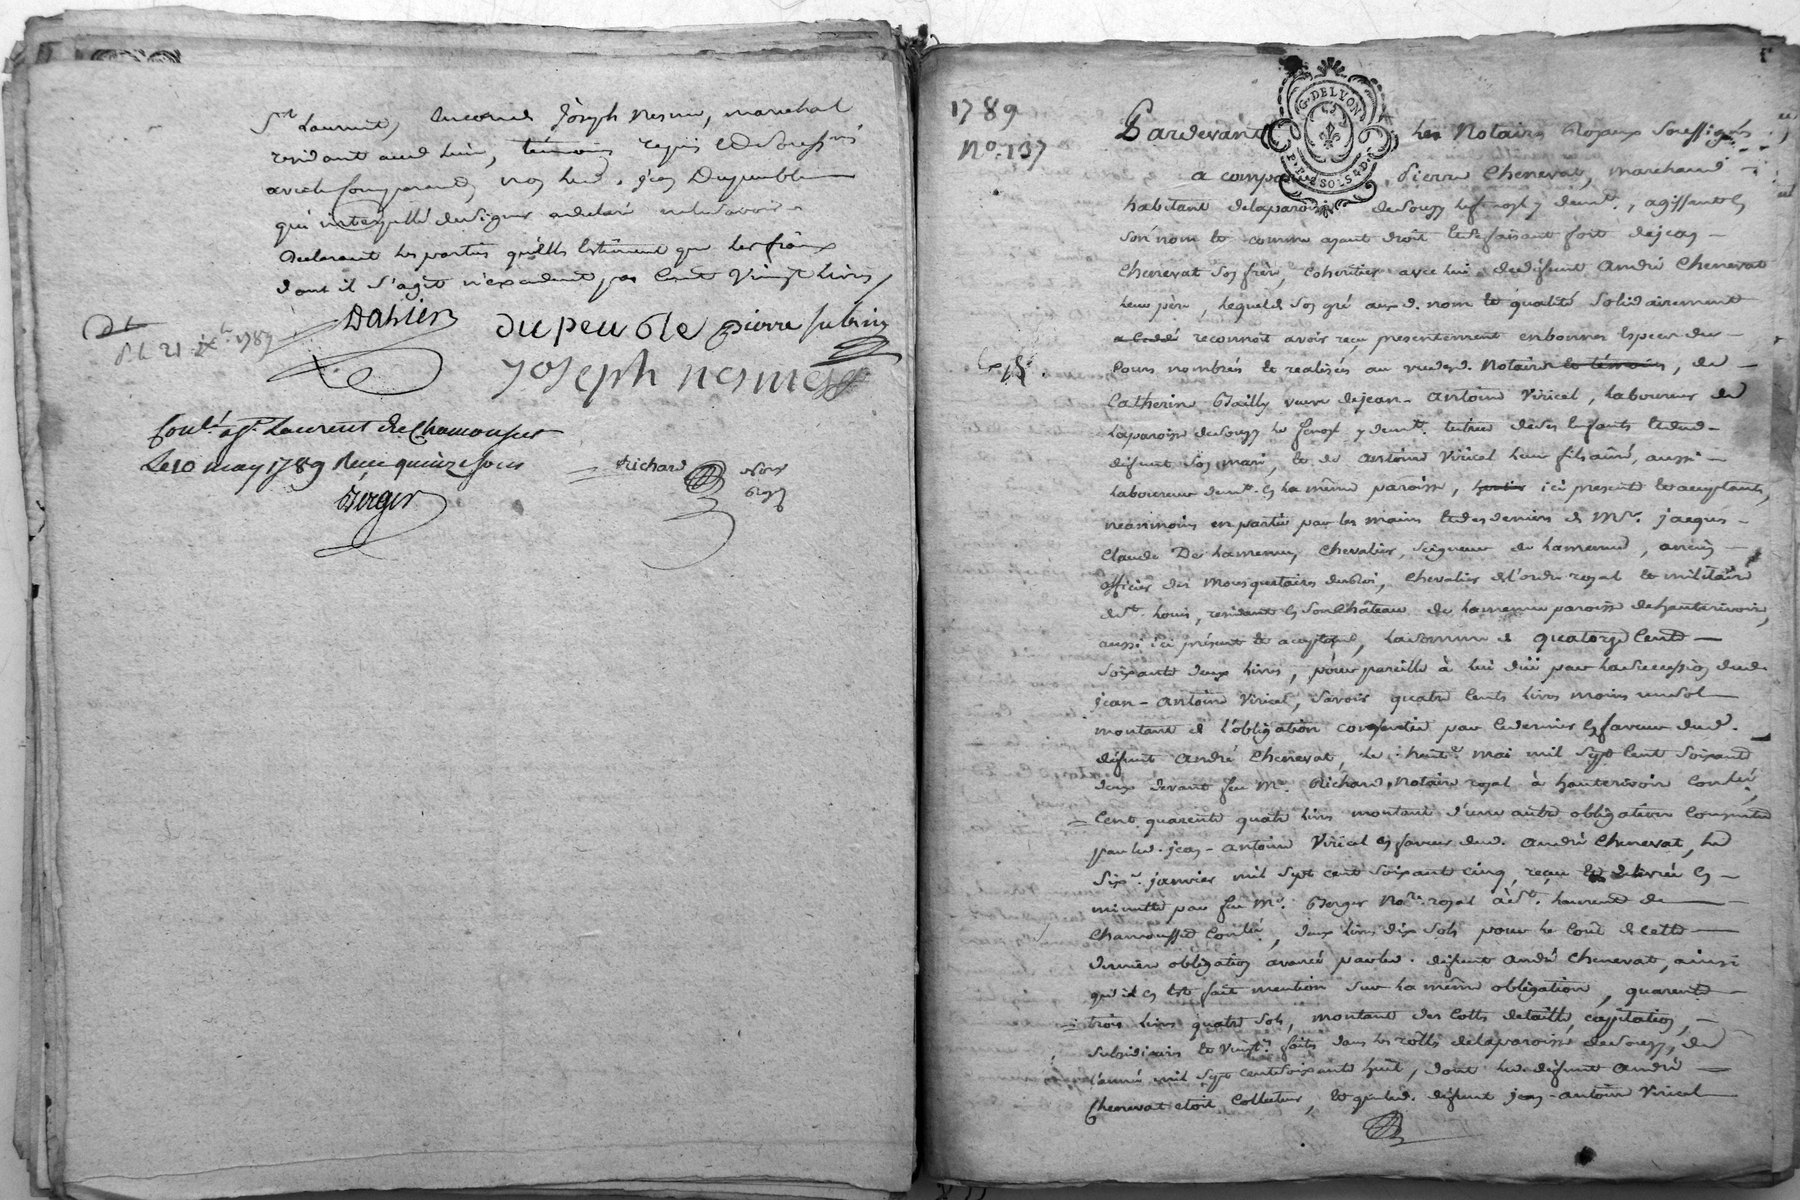 St. Laurent, Joseph nesme, marechal
residant aud. lieu, témoins requis et Soussignés
avec le Comparant, non led. jean Dupeuble
qui interpellé de signer a declaré ne le savoir
Declarant les parties qu'elles Estiment que les fraix
dont il s'agit n'excedent pas Cent Vingt livres,
Dahier dupeuble pierre
d. 21 1789
joseph nesme
Conlé. a St. Laurent de Chamousset
Le 10 may 1789 Recu quinze sous
Berger
Richard
Nore
Royal
1789
No. 137
G. DE LYON
P. P. 2 SOLS 4 D.
Pardevant les Notaires Royaux Soussignés
a comparu, Pierre Chenevat, marchand
habitant de la paroisse de Souzy y demt., agissant en
son nom et comme ayant droit et se faisant fort de jean
Chenevat son frère, coheritier avec lui dudefunt André Chenevat
leur père, lequel de son gré aux d. nom et qualité solidairement
a Cedé reconnoit avoir reçu presentement en bonnes Especes du
Cours nombrés et realisés au vu desd. Notaires et témoins, de
Catherine Bailly veuve de jean-antoine Viricel, laboureur de
la paroisse de Souzy y demt. tutrice de ses Enfants et dud.
defunt son mari, et de Antoine Viricel leur fils ainé, aussi
laboureur demt. en la même paroisse, ici presents et acceptants,
neanmoins en partie par les mains et des deniers de Mre. jacques
Claude De Lamenue, Chevalier, Seigneur de Lamenue, ancien
officier des Mousquetaires du Roi, Chevalier de l'ordre royal et militaire
de St. Louis, residant en son Château de Lamenue paroisse de hauterivoire,
aussi ici présent et acceptant, la somme de quatorze Cent
soixante deux livres, pour pareille à lui düe par la succession dud.
jean-antoine Viricel, savoir quatre Cents livres moins un sol
montant de l'obligation consentie par ce dernier En faveur dud.
défunt André Chenevat, le huite. mai mil sept Cent soixante
deux devant feu Me. Richard Notaire royal à hauterivoire Conlée,
Cent quarente quatre livres montant d'une autre obligation Consentie
par led. jean-antoine Viricel en faveur dud. André Chenevat, le
six. janvier mil sept cent soixante cinq, reçue et delivrée en
minutte par feu Me. Berger Nore. royal à St. Laurent de
Chamousset Conlée, deux livres dix sols pour le Cout de cette
derniere obligation avancé par led. défunt andré Chenevat, ainsi
qu'il en Est fait mention sur la même obligation, quarente
trois livres quatre sols, montant des Cottes de taille, capitation,
Subsidiaire et Vingte. faites dans les rolles de la paroisse de Souzy, de
l'année mil sept cent soixante huit, dont led. défunt André
Chenevat etoit Collecteur, et que led. défunt jean-antoine Viricel